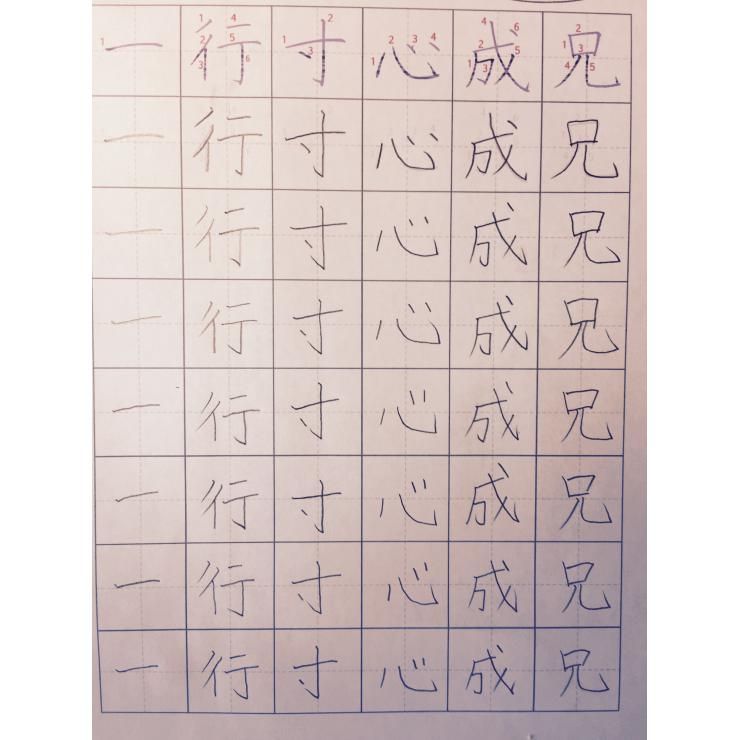 一 行 寸 心 成 兄
一 行 寸 心 成 兄
一 行 寸 心 成 兄
一 行 寸 心 成 兄
一 行 寸 心 成 兄
一 行 寸 心 成 兄
一 行 寸 心 成 兄
一 行 寸 心 成 兄